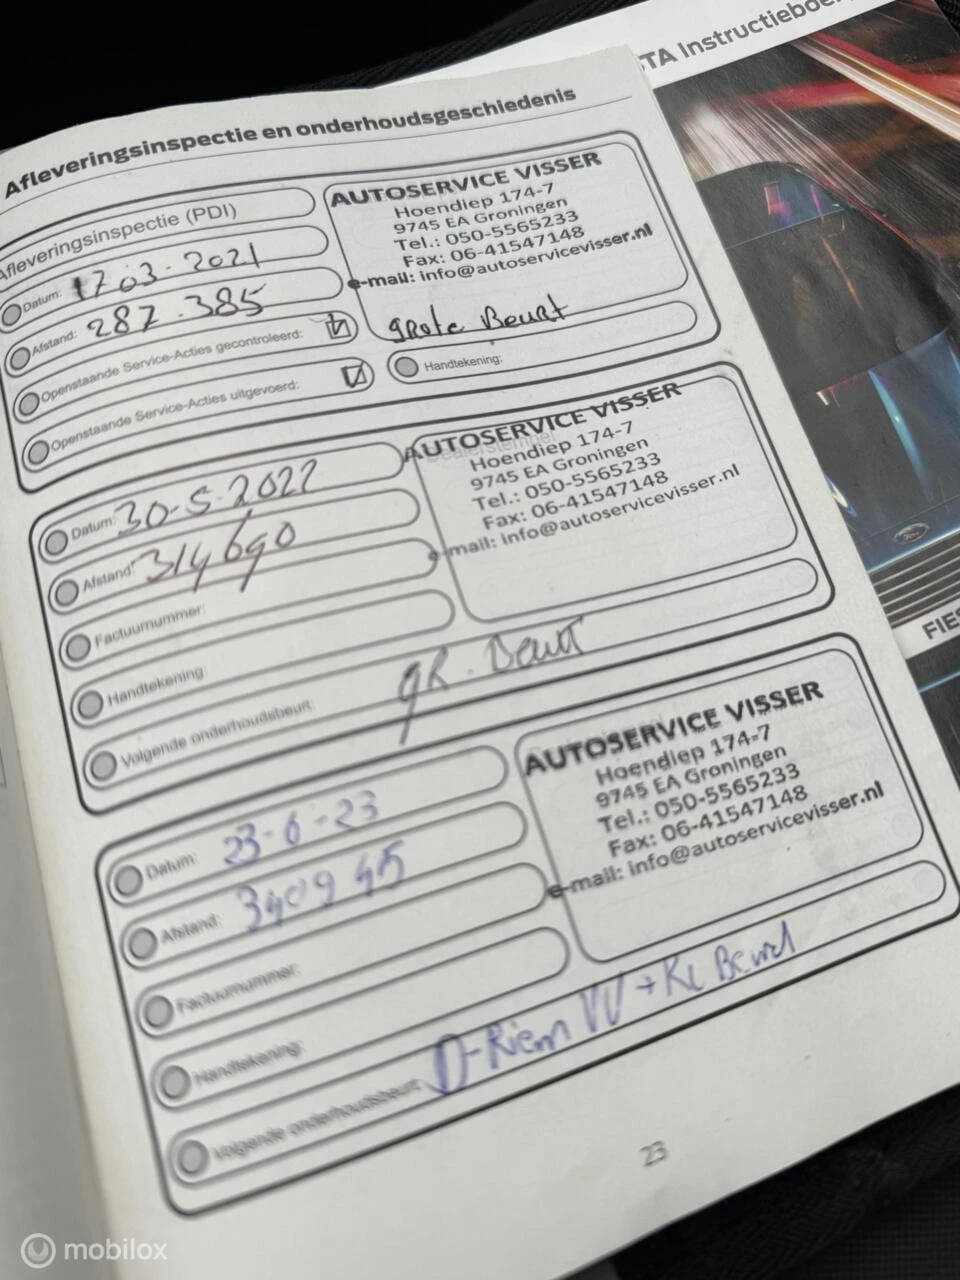 TA Instructieboekje
Afleveringsinspectie en onderhoudsgeschiedenis
Afleveringsinspectie (PDI)
Datum: 17 03-2021
Afstand: 287.385
Openstaande Service-Acties gecontroleerd:
Openstaande Service-Acties uitgevoerd:
AUTOSERVICE VISSER
Hoendiep 174-7
9745 EA Groningen
Tel.: 050-5565233
Fax: 06-41547148
e-mail: info@autoservicevisser.nl
grote Beurt
Handtekening:
Datum: 30-5-2022
Afstand: 314690
Factuurnummer:
Handtekening:
Volgende onderhoudsbeurt:
Dealerstempel
AUTOSERVICE VISSER
Hoendiep 174-7
9745 EA Groningen
Tel.: 050-5565233
Fax: 06-41547148
e-mail: info@autoservicevisser.nl
gR. Beurt
Datum: 23-6-23
Afstand: 340945
Factuurnummer:
Handtekening:
Volgende onderhoudsbeurt:
AUTOSERVICE VISSER
Hoendiep 174-7
9745 EA Groningen
Tel.: 050-5565233
Fax: 06-41547148
e-mail: info@autoservicevisser.nl
D-Riem VV + KL Beurt
23
Ford
FIES
mobilox